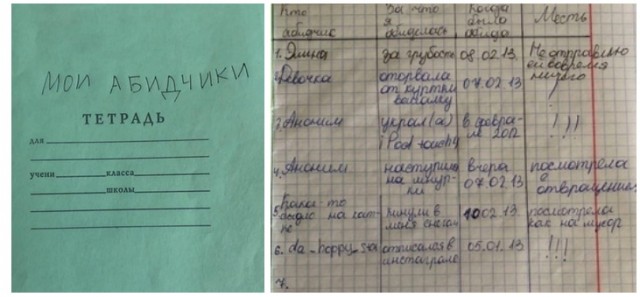 МОИ АБИДЧИКИ
ТЕТРАДЬ
для
учени класса
школы
Кто абидчик За что я абиделась Когда была абида Месть
1. Элина за грубость 08.02.13 Не отправлю ей вовремя
2. Девочка оторвала от куртки 07.02.13
3. Аноним украл(а) iPod touch в феврале 2012 !!!
4. Аноним наступил на шнурки вчера 07.02.13 посмотрела с отвращением
5. Какая то на кинули в меня снегом 10 02.13 посмотрела как на мусор
6. da_hoppy_sta отписался в инстаграме 05.01.13 !!!
7.